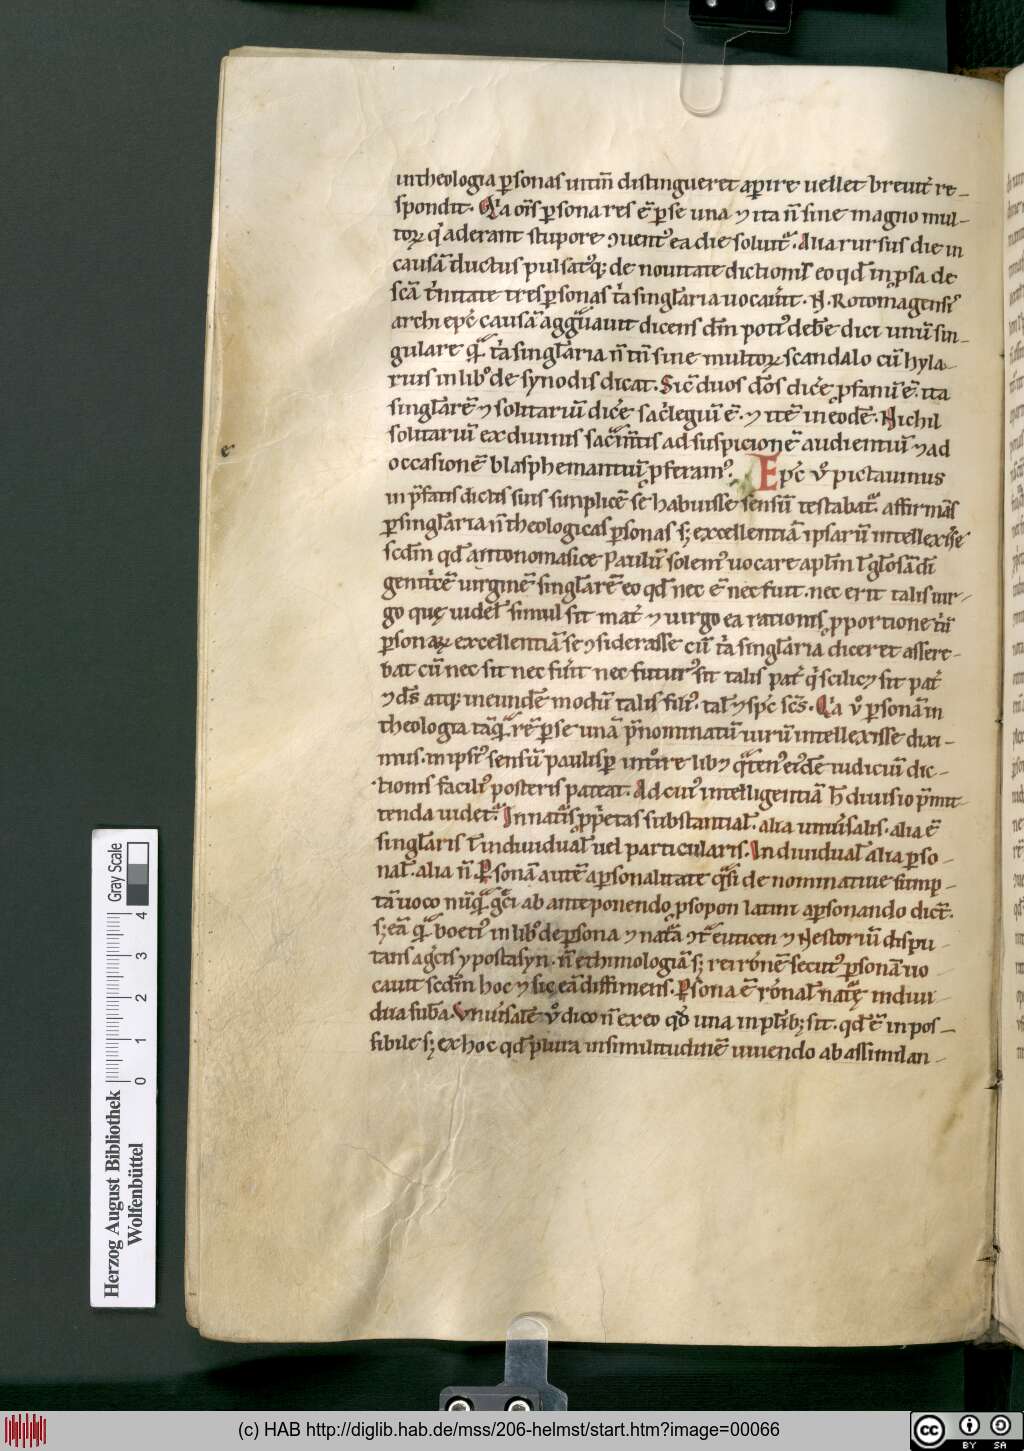 in theologia ꝑsonas untm̄ distingueret aꝑire uellet breuit̓ re-
spondit. Q̓a om̄s ꝑsona res ē ꝑ se una ⁊ ita n̄ sine magno mul-
toꝝ q̓ aderant stupore ꝯuent᷒ ea die soluit᷑. Alia rursus die in
causā ductus pulsat᷒q; de nouitate dictionis eo qd̄ in ꝓsa de
sc̄a t̓nitate tres ꝑsonas t̓a singl̄aria uocauit. N. Rotomagensis
archiep̄c causā aggͣuauit dicens dm̄ poti᷒ deb̄e dici unū sin-
gulare qͣ̄ t̓a singl̄aria n̄ tn̄ sine multoꝝ scandalo cū hyla-
rius in lib᷒ de synodis dicat. Sic̄ duos dōs dic̓e ꝓfanū ē. ita
singl̄arē ⁊ solitariū dic̓e sac̓legiū ē. ⁊ itē in eodē. Nichil
solitariū ex diuinis sacͣm̄tis ad suspicionē audientiū ⁊ ad
occasionē blasphemantiū ꝓferam᷒. Ep̄c v̊ pictauinus
in p̄fatis dictis suis simplicē se habuisse sensū testabat᷑. affirmās
ꝑ singl̄aria n̄ theologicas ꝑsonas s; excellentiā ipsarū intellexisse
scdm̄ qd̄ antonomasice Paulū solem᷒ uocare apl̄m ł gl̄osā dī
genit̓cē uirginē singl̄arē eo qd̄ nec ē nec fuit. nec erit talis uir-
go quę uidel̄ simul sit mat̓ ⁊ uirgo ea rationis ꝓportione t̓ū
ꝑsonaꝝ excellentiā se ꝯsiderasse cū t̓a singl̄aria diceret assere-
bat cū nec sit nec fuit nec futur᷒ sit talis pat̓ q̓ scilic⁊ sit pat̓
⁊ ds̄ atq; in eundē modū talis fili᷒. tal̄ ⁊ sp̄c sc̄s. Q̓a v̊ ꝑsonā in
theologia tāqͣ̄ rē ꝑ se unā p̄nominatū uirū intellexisse dixi-
mus. in ipsi᷒ sensū paulisꝑ int̓ire lib⁊ qͣten᷒ ei᷒dē iudiciū dic-
tionis facili᷒ posteris pateat. Ad cui᷒ intelligentiā h̄ diuisio p̄mit-
tenda uidet᷑. In natͣlis ꝓp̓etas substantial̄. alia uniu̓salis. alia ē
singl̄aris ł indiuidual̄ uel particularis. Indiuidual̄ alia ꝑso-
nal̄. alia n̄. Ꝑsonā autē a ꝑsonalitate qͣsi denominatiue sump-
tā uoco nūqͣ̄ g̊ci ab anteponendo ꝓsopon latini a ꝑsonando dict̄.
s; eā qͣ̄ boeti᷒ in lib᷒ de ꝑsona ⁊ natͣ ꝯtͣ euticen ⁊ Nestoriū dispu-
tans a g̓cis ypostasyn. n̄ ethimologiā s; rei rōnē secut᷒ ꝑsonā uo-
cauit scdm̄ hoc ⁊ sic eā diffiniens. Ꝑsona ē rōnal̄ natͣę indiui-
dua suba. Vniu̓salē v̊ dico n̄ ex eo qd̓ una in pl̄ib; sit. qd̄ ē in pos-
sibile s; ex hoc qd̄ plura in similitudinē uniendo ab assimilan-
e
Herzog August Bibliothek
Wolfenbüttel
0 1 2 3 4
Gray Scale
(c) HAB http://diglib.hab.de/mss/206-helmst/start.htm?image=00066
cc BY SA